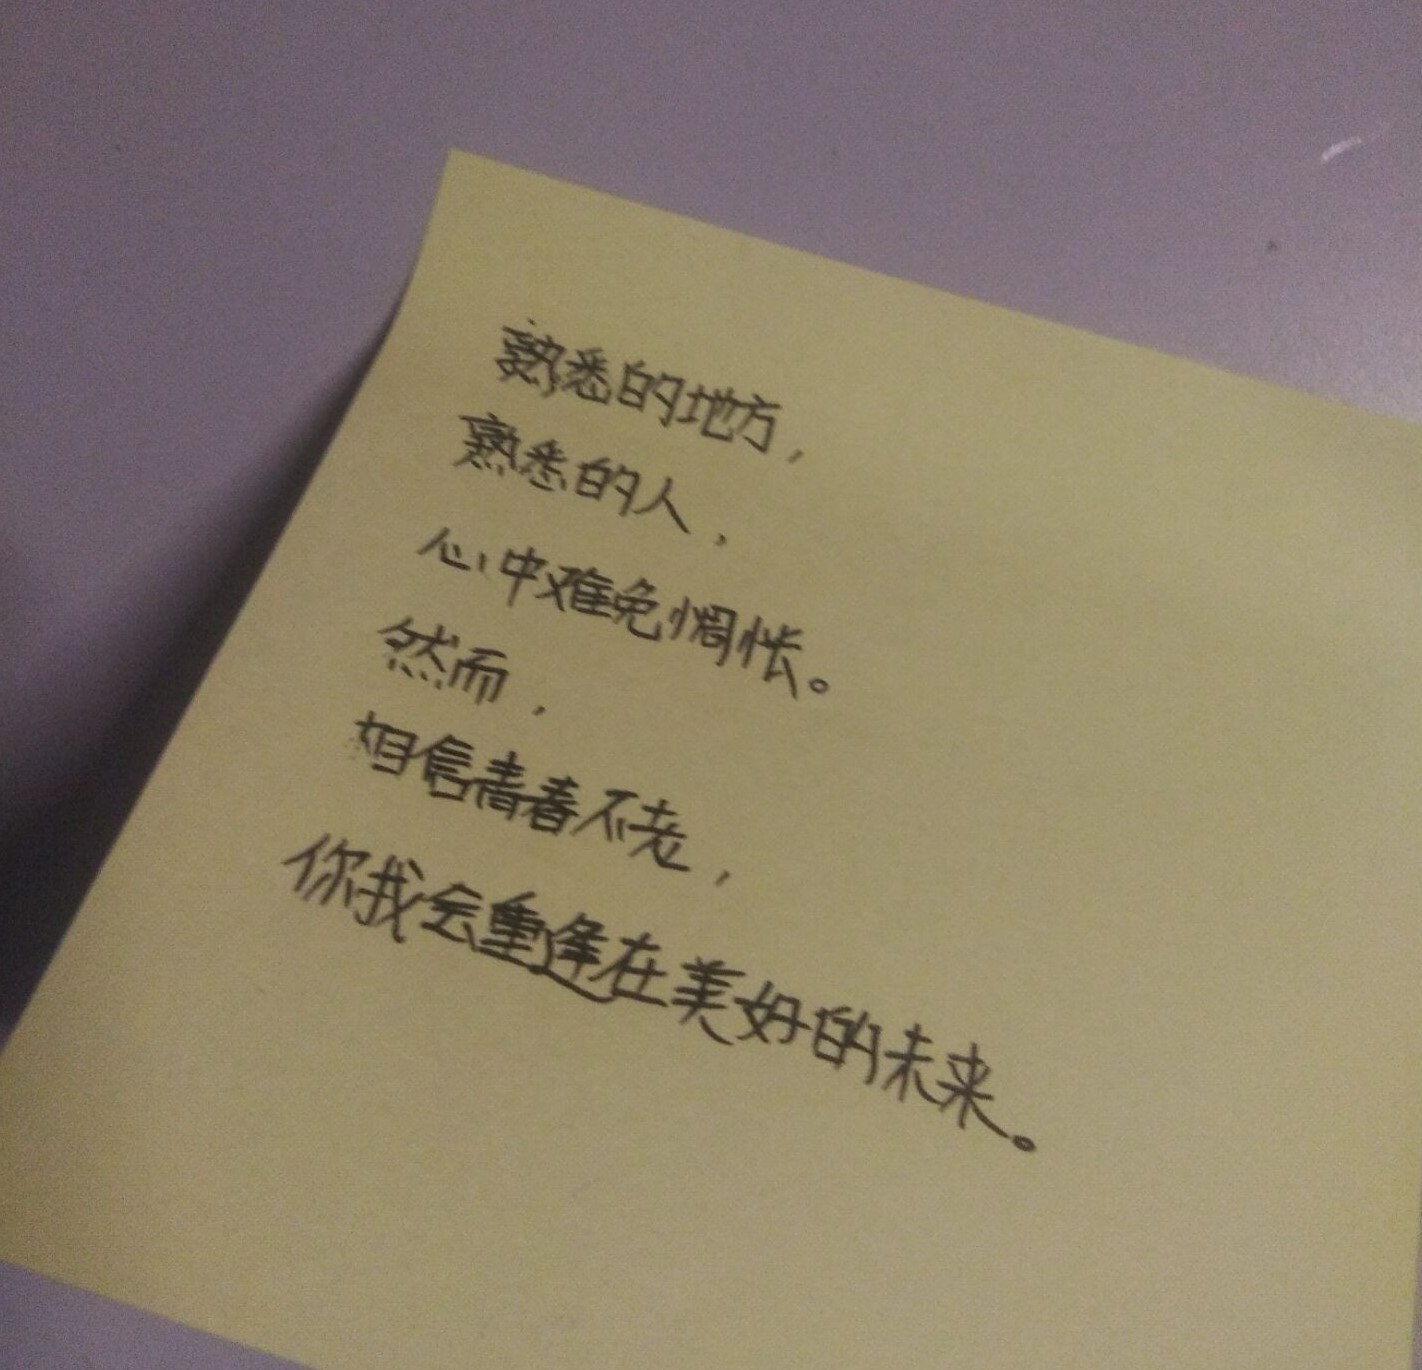 熟悉的地方，
熟悉的人，
心中难免惆怅。
然而，
相信青春不老，
你我会重逢在美好的未来。